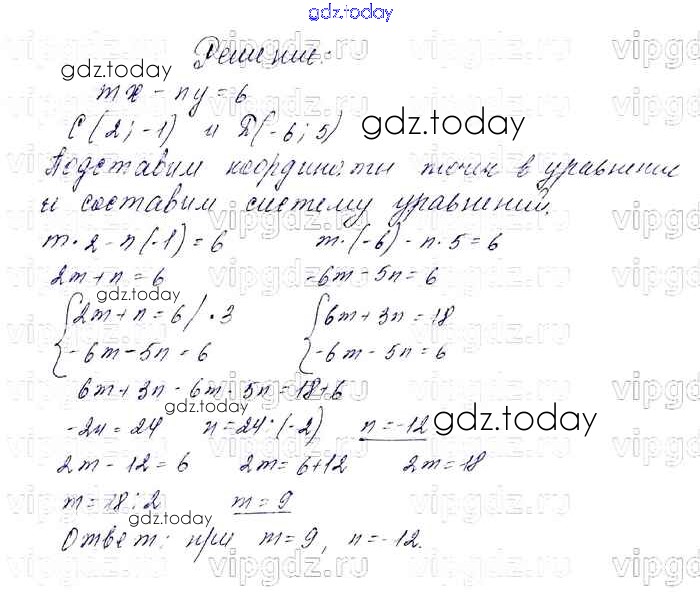 gdz.today
Решение:
gdz.today
mx - ny = 6
C(2; -1) и D(-6; 5) gdz.today
Подставим координаты точек в уравнение
и составим систему уравнений.
m·2 - n(-1) = 6 m·(-6) - n·5 = 6
2m + n = 6 -6m - 5n = 6
gdz.today
{2m + n = 6 / ·3 {6m + 3n = 18
{-6m - 5n = 6 {-6m - 5n = 6
6m + 3n - 6m - 5n = 18 + 6
gdz.today
-2n = 24 n = 24 : (-2) n = -12 gdz.today
2m - 12 = 6 2m = 6 + 12 2m = 18
m = 18 : 2 m = 9
gdz.today
Ответ: при m = 9, n = -12.
vipgdz.ru